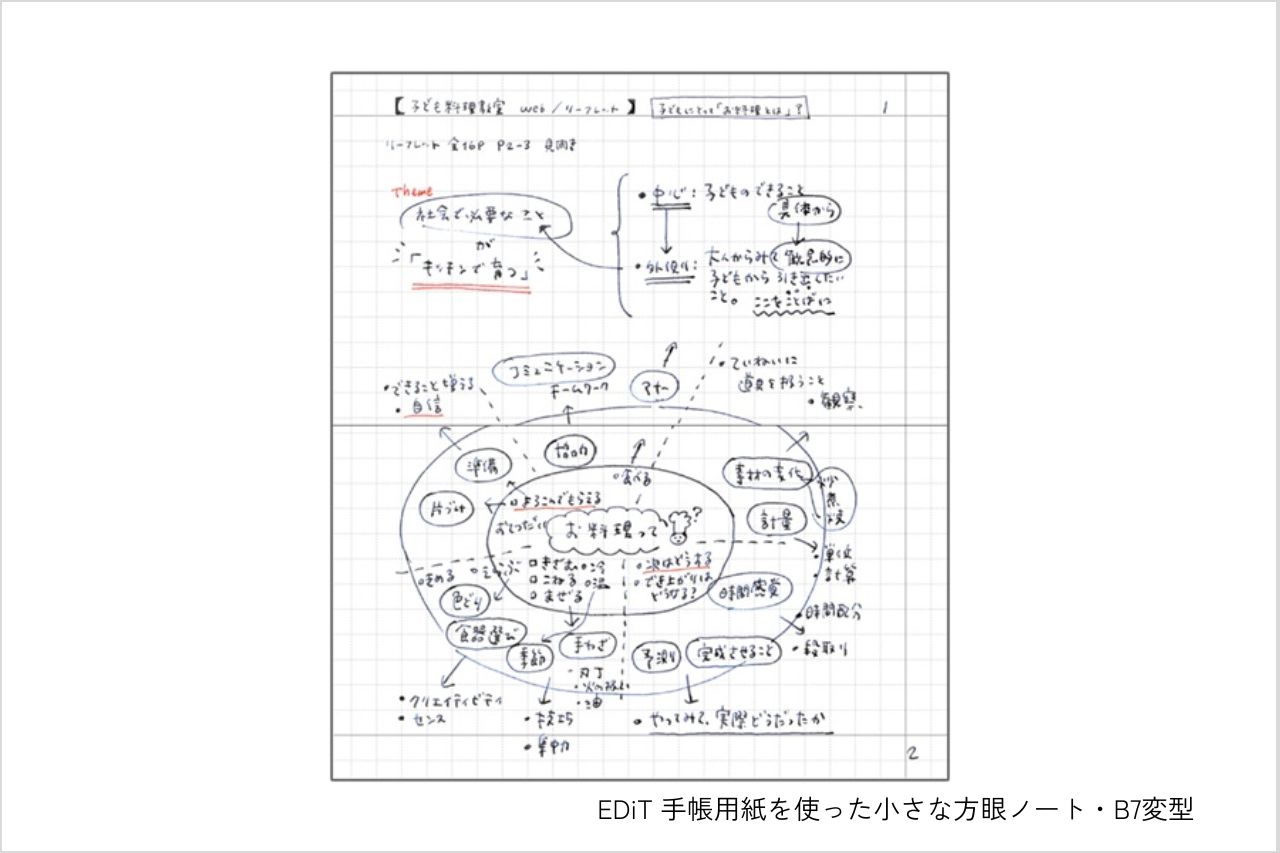 【子ども料理教室 web/リーフレット】 子どもにとって「お料理とは」? 1
リーフレット 全16P P2-3 見開き
Theme
社会で必要なこと
が
「キッチンで育つ」
・中心:子どものできること
具体から
・外側:大人からみて概念的に
子どもから引き出したい
こと。ここをことばに
・できること増える
・自信
コミュニケーション
チームワーク
マナー
・ていねいに
道具を扱うこと
・観察
準備
協力
食べる
素材の変化
炒
煮
焼
片づけ
よろこんでもらえる
おてつだい
お料理って?
計量
・単位
・計算
きめる
えらぶ
きざむ 冷
こねる 温
まぜる
次はどうする
でき上がりは
どうなる?
時間感覚
・時間配分
・段取り
色どり
食器選び
季節
手わざ
・刃丁
・火の扱い
・油
予測
完成させること
・クリエイティビティ
・センス
・技巧
・集中力
・やってみて、実際どうだったか
2
EDiT 手帳用紙を使った小さな方眼ノート・B7変型